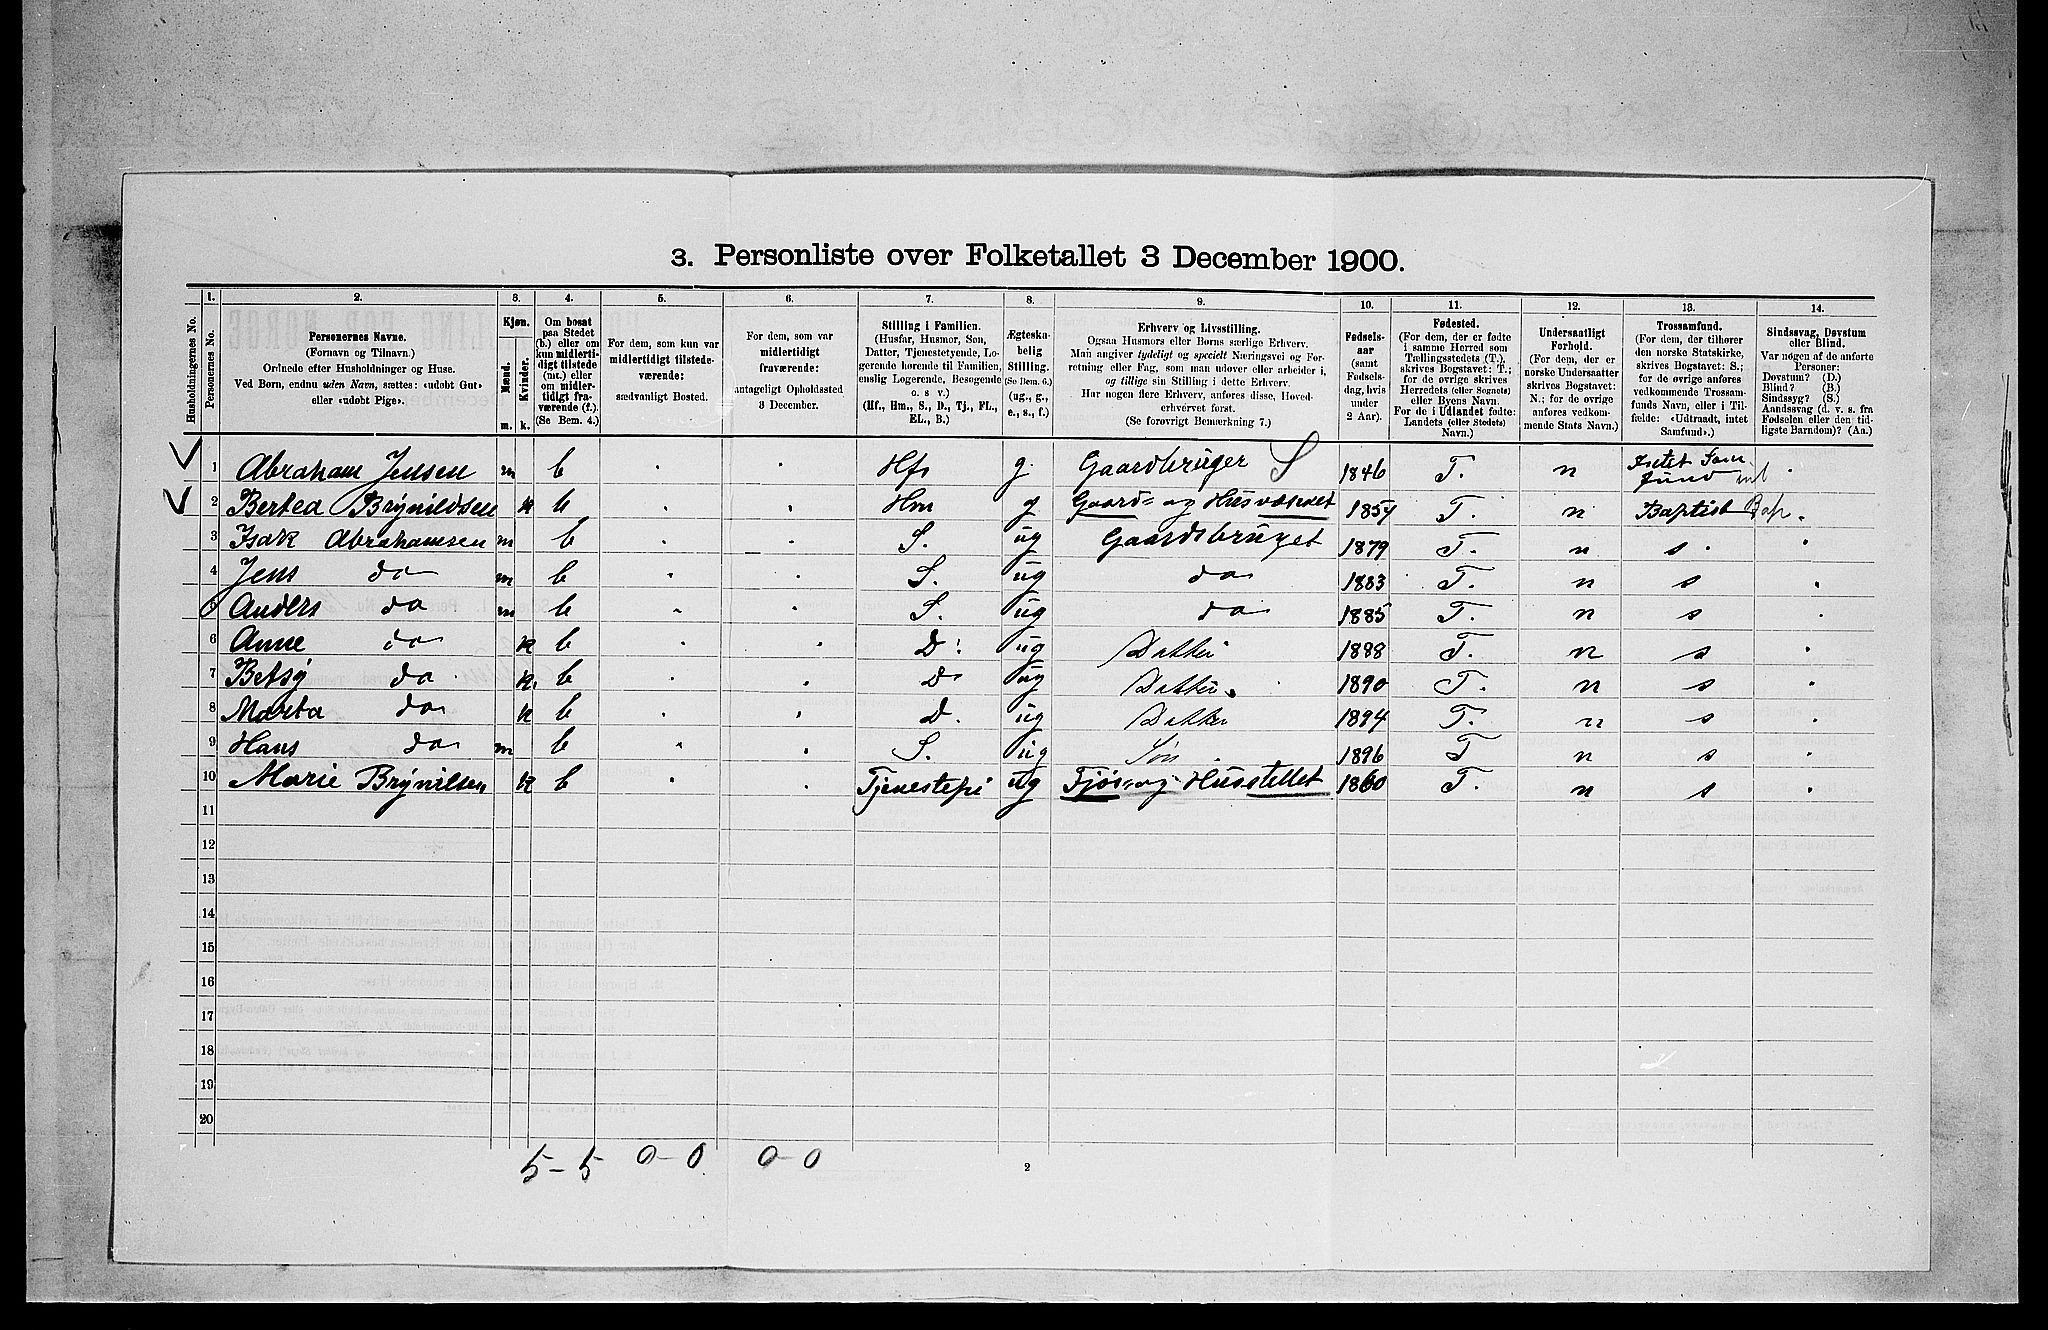 3. Personliste over Folketallet 3 December 1900.
1. 2. 3. 4. 5. 6. 7. 8. 9. 10. 11. 12. 13. 14.
Husholdningernes No.
Personernes No.
Personernes Navne.
(Fornavn og Tilnavn.)
Ordnede efter Husholdninger og Huse.
Ved Børn, endnu uden Navn, sættes: «udøbt Gut»
eller «udøbt Pige».
Kjøn.
Mænd.
Kvinder.
m. k.
Om bosat
paa Stedet
(b.) eller om
kun midlerti-
digt tilstede
(mt.) eller
om midler-
tidigt fra-
værende (f.).
(Se Bem. 4.)
For dem, som kun var
midlertidigt tilstede-
værende:
sædvanligt Bosted.
For dem, som var
midlertidigt
fraværende:
antageligt Opholdssted
3 December.
Stilling i Familien.
(Husfar, Husmor, Søn,
Datter, Tjenestetyende, Lo-
gerende hørende til Familien,
enslig Logerende, Besøgende
o. s. v.)
(Hf., Hm., S., D., Tj., FL.,
EL., B.)
Ægteska-
belig
Stilling.
(Se Bem. 6.)
(ug., g.,
e., s., f.)
Erhverv og Livsstilling.
Ogsaa Husmors eller Børns særlige Erhverv.
Man angiver tydeligt og specielt Næringsvei og For-
retning eller Fag, som man udøver eller arbeider i,
og tillige sin Stilling i dette Erhverv.
Har nogen flere Erhverv, anføres disse, Hoved-
erhvervet først.
(Se forøvrigt Bemerkning 7.)
Fødsels-
aar
(samt
Fødsels-
dag, hvis
under
2 Aar).
Fødested.
(For dem, der er fødte
i samme Herred som
Tællingsstedets (T.),
skrives Bogstavet: T.;
for de øvrige skrives
Herredets (eller Sognets)
eller Byens Navn.
For de i Udlandet fødte:
Landets (eller Stedets)
Navn.)
Undersaatligt
Forhold.
(For dem, der er
norske Undersaatter
skrives Bogstavet:
N.; for de øvrige
anføres vedkom-
mende Stats Navn.)
Trossamfund.
(For dem, der tilhører
den norske Statskirke,
skrives Bogstavet: S.;
for de øvrige anføres
vedkommende Trossam-
funds Navn, eller i Til-
fælde: «Udtraadt, intet
Samfund».)
Sindssvag, Døvstum
eller Blind.
Var nogen af de anførte
Personer:
Døvstum? (D.)
Blind? (B.)
Sindssyg? (S.)
Aandssvag (d. v. s. fra
Fødselen eller den tid-
ligste Barndom)? (Aa.)
1 Abraham Jensen m b Hfr g. Gaardbruger S 1846 T. n Intet Sam
fund
2 Berted Brynildsen k b Hm g Gaard= og Husvæsenet 1854 T. n Baptist Bap.
3 Isak Abrahamsen m b S. ug Gaardsbruget 1879 T. n s.
4 Jens do m b S. ug do 1883 T. n s
5 Anders do m b S. ug do 1885 T. n s
6 Anne do k b D. ug Datter 1888 T. n s
7 Betsy do k. b D ug Datter. 1890 T. n s
8 Marta do k b D. ug Datter 1894 T. n s
9 Hans do m b S. ug Søn 1896 T n s
10 Marie Brynilsen k b Tjenestepi ug Fjøs og Husstellet 1860 T. n s
11
12
13
14
15
16
17
18
19
20
5-5 0-0 0-0
2